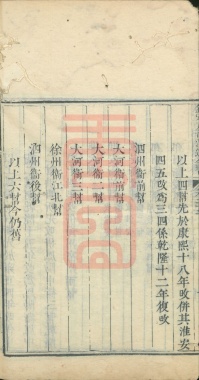 以上四幫先於康熙十八年改併其淮安
四五改為三四係乾隆十二年復改
泗州衛前幫
大河衛前幫
大河衛二幫
大河衛三幫
徐州衛江北幫
泗州衛後幫
以上六幫今仍舊